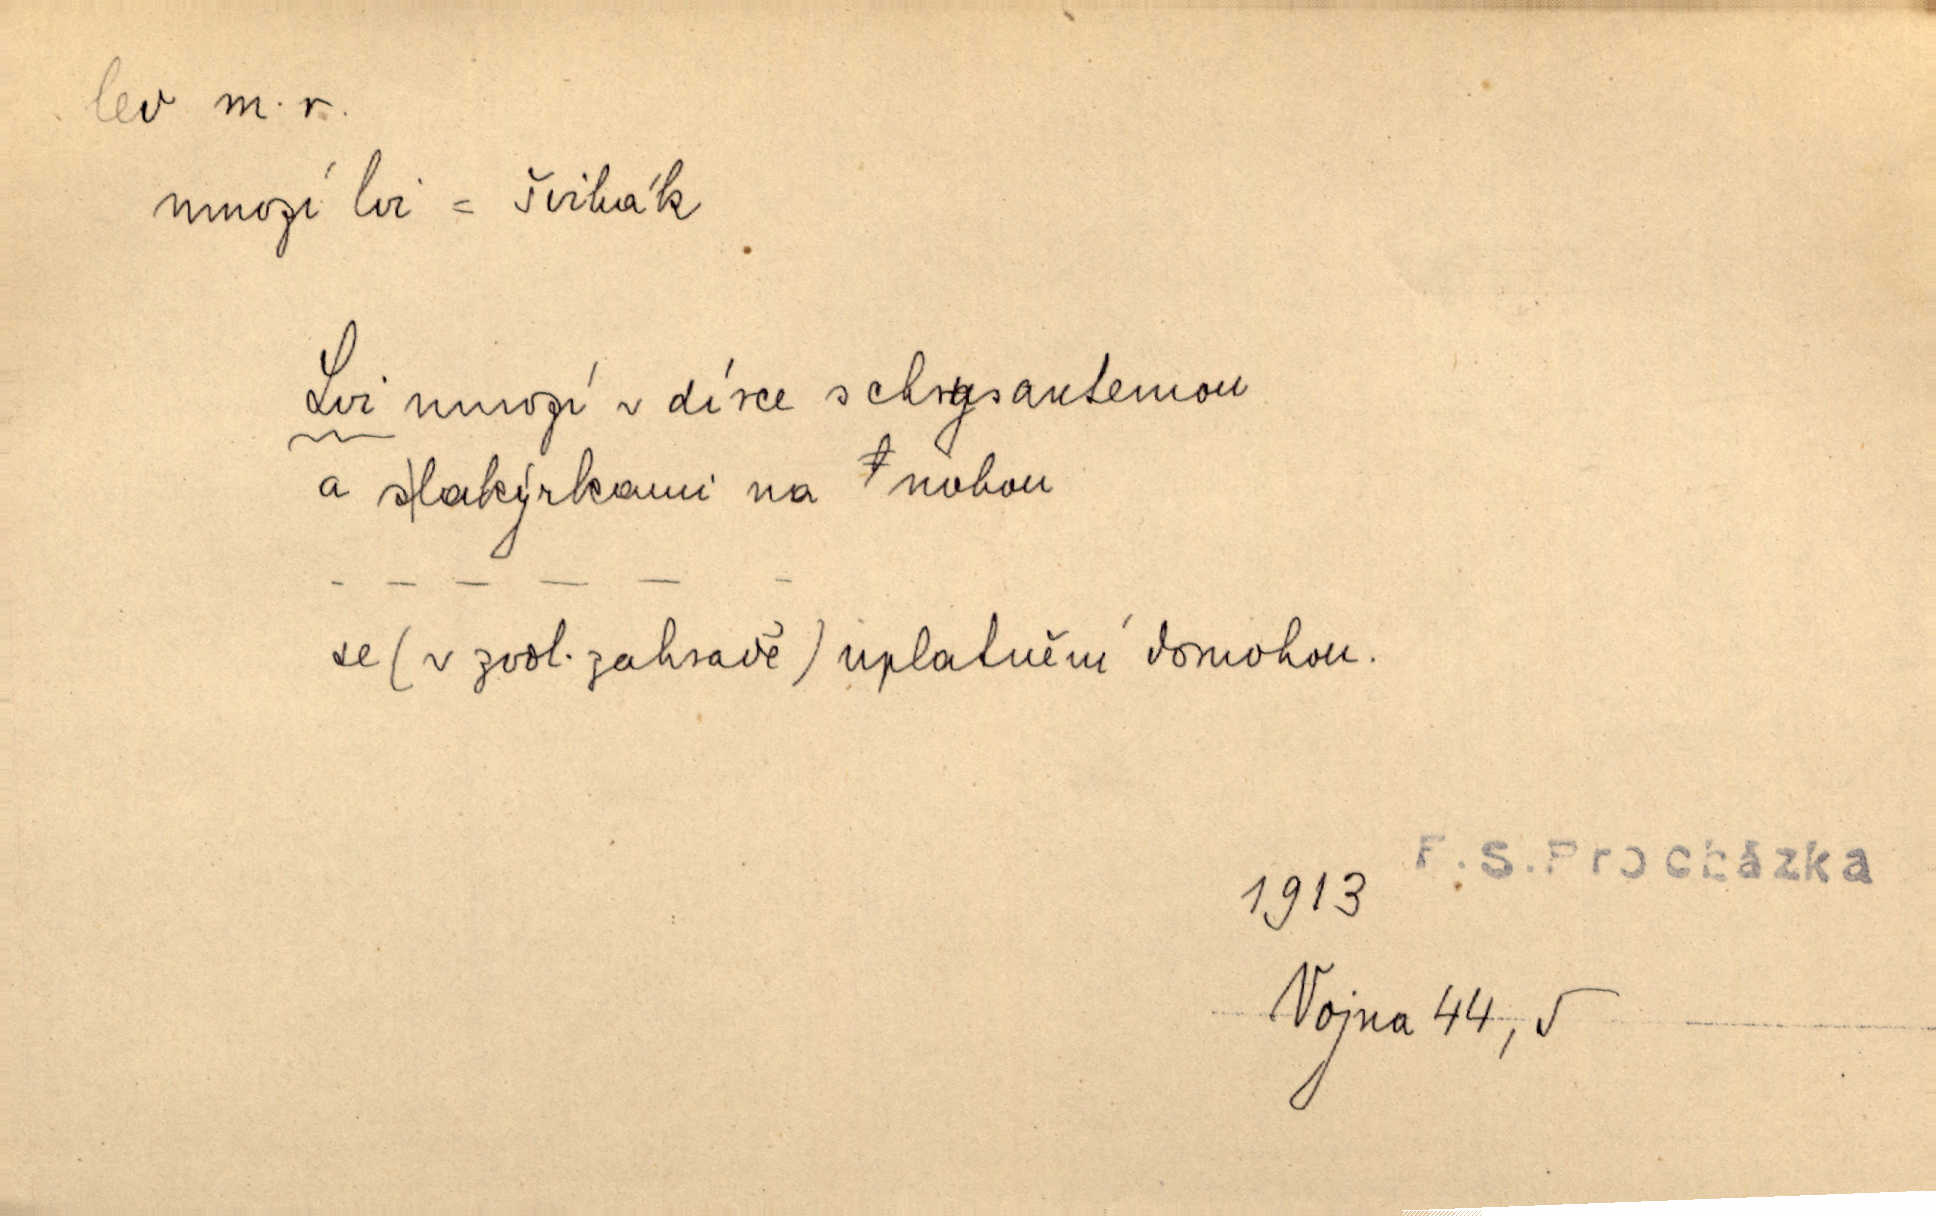 lev m. r.
mnozí lvi = švihák
Lvi mnozí v dírce s chrysantemou
a s lakýrkami na nohou
- - - - - -
se (v zool. zahradě) uplatnění domohou.
F.S.Procházka
1913
Vojna 44, 5